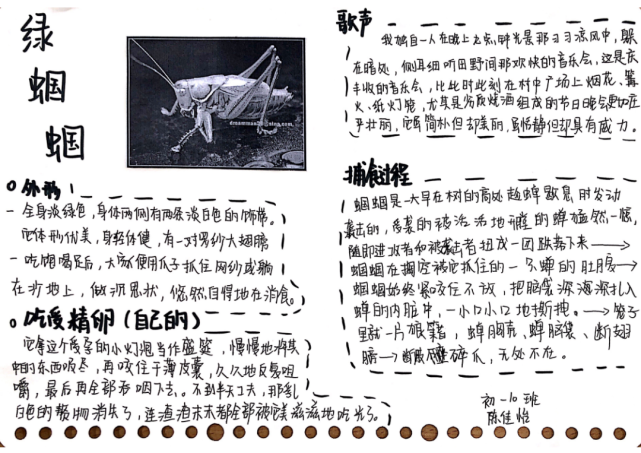 绿
蝈
蝈
外形
一 全身淡绿色，身体两侧有两条淡白色的饰带。
它体形优美，身轻体健，有一对罗纱大翅膀
一 吃饱喝足后，大家便用爪子抓住网纱或躺
在沙地上，做沉思状，悠然自得地在消食。
吃受精卵（自己的）
它拿这个受孕的小灯泡当作盛筵，慢慢地将其
中的东西吸尽，再咬住干薄皮囊，久久地反复咀
嚼，最后再全部吞咽下去。不到半天工夫，那乳
白色的赘物消失了，连渣渣末末都全部被美滋滋地吃光了。
歌声
我独自一人在晚上
在暗处，侧耳细听田野间那欢快的音乐会，这是庆
丰收的音乐会，比此时此刻在村中广场上烟花、篝
火、纸灯笼，尤其是劣质烧酒组成的节日晚会更加庄
严壮丽，它虽简朴但却美丽，虽恬静但却具有威力。
捕食过程
蝈蝈是一大早在树的高处趁蝉歇息时发动
袭击的，受袭的被活活地
随即进攻者和被袭击者扭成一团跌落下来→
蝈蝈在掏空被它抓住的一只蝉的肚腹→
蝈蝈始终紧咬住不放，把脑袋深深扎入
蝉的内脏中，一小口小口地撕拽。→笼子
里就一片狼籍，蝉胸壳、蝉脑袋、断翅
膀→断腿碎爪，无处不在。
初一10班
陈佳怡